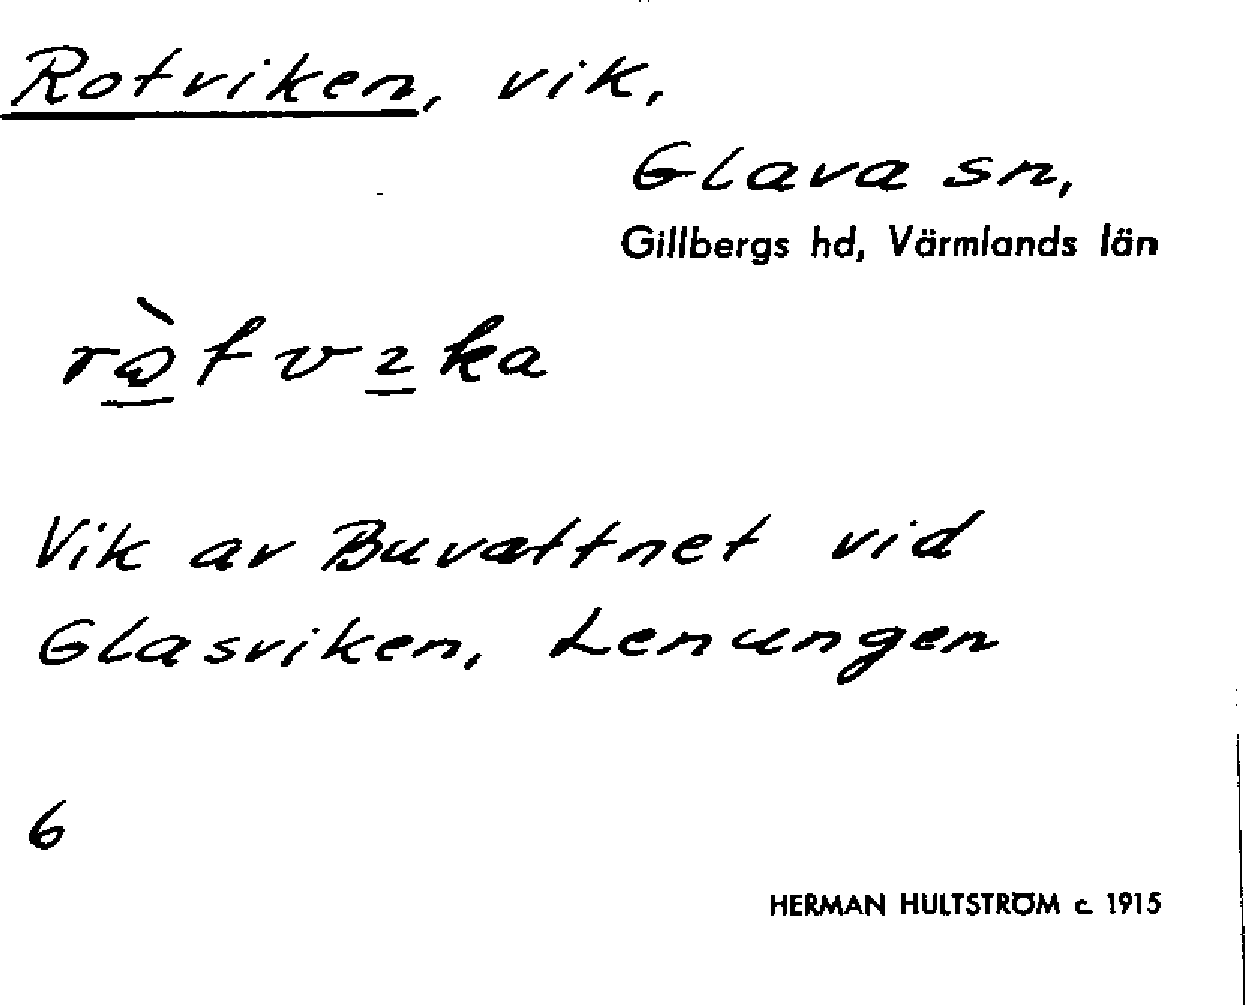 Rotviken, vik,
Glava sn,
Gillbergs hd, Värmlands län
Vik av Buvattnet vid
Glasviken, Lenungen
6
HERMAN HULTSTRÖM c. 1915